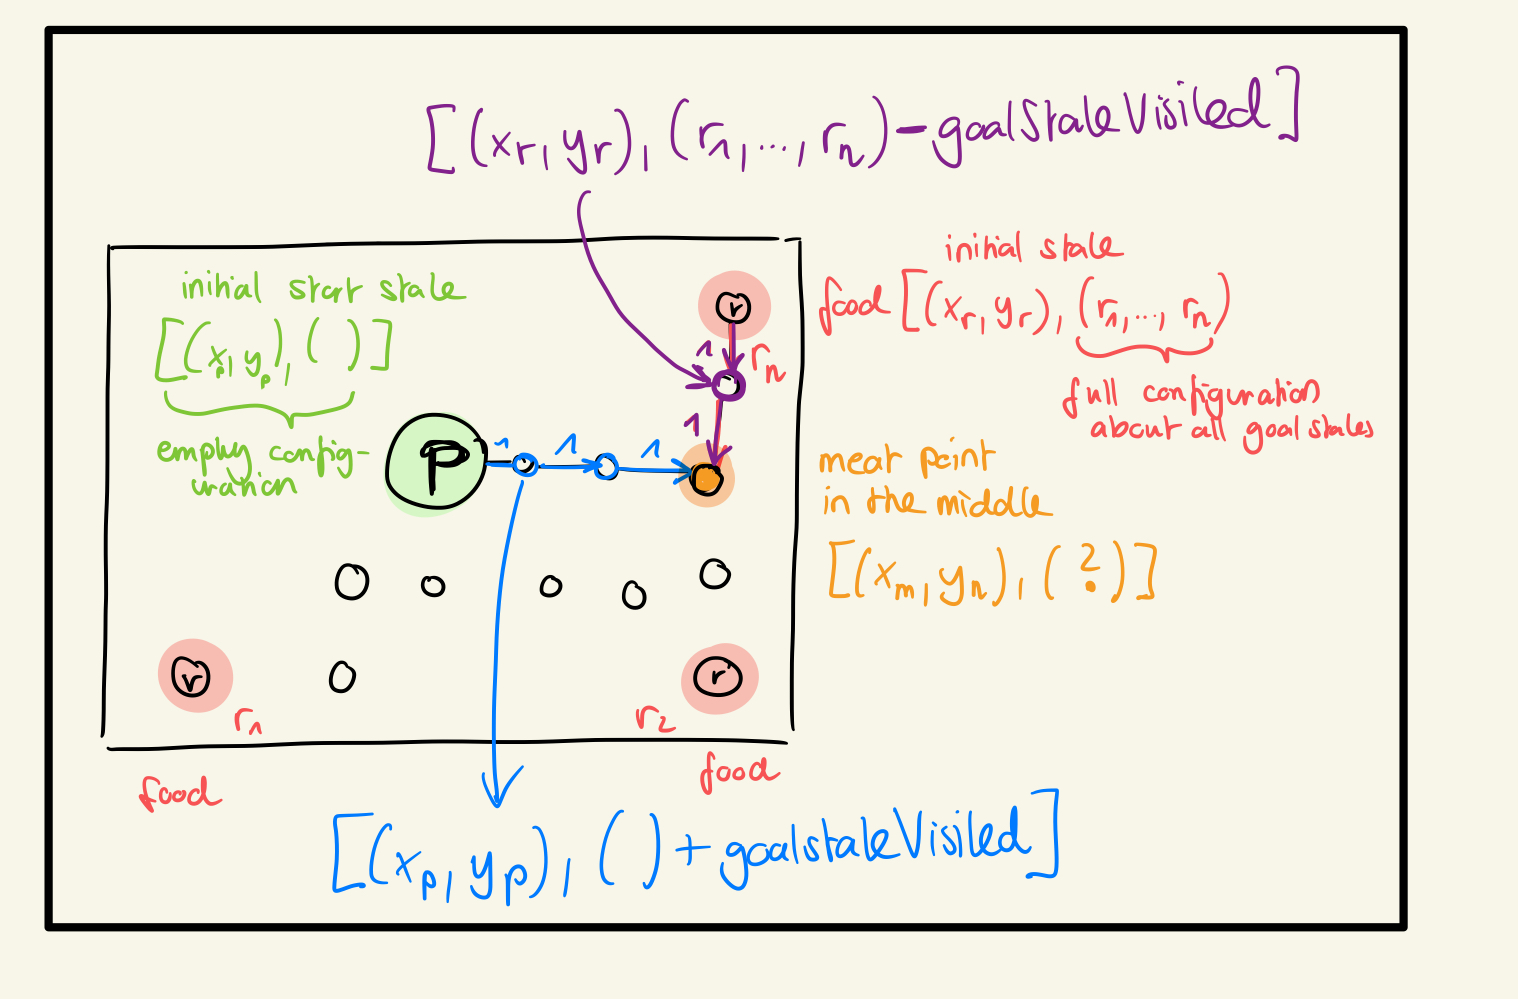 [(xr, yr), (r1, ..., rn) - goalStateVisited]
initial start state
[(xp, yp), ( )]
empty config-
uration
P
1
1
1
r
1
rn
1
initial state
food [(xr, yr), (r1, ..., rn)]
full configuration
about all goal states
meat point
in the middle
[(xm, yn), (?)]
r
r1
r
r2
food
food
[(xp, yp), ( ) + goalstateVisited]